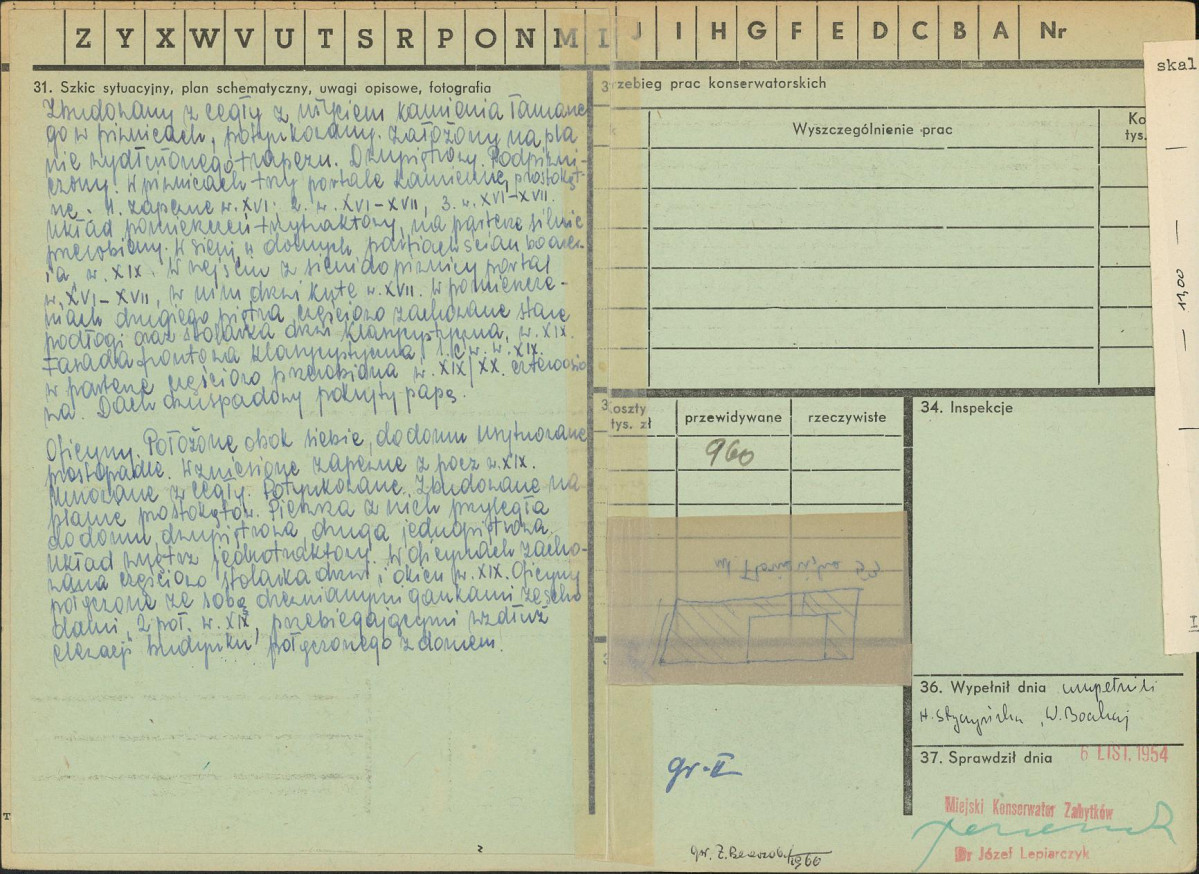 Z Y X W V U T S R P O N M Ł J I H G F E D C B A Nr
31. Szkic sytuacyjny, plan schematyczny, uwagi opisowe, fotografia
Zbudowany z cegły z użyciem kamienia łamane
go w piwnicach, potynkowany. Założony na pla
nie wydłużonego trapezu. Dwupiętrowy. Podpiwni-
czony. W piwnicach trzy portale kamienne, prostokąt-
ne. 1. zapewne w. XVI. 2. w. XVI-XVII, 3. w. XVI-XVII.
Układ pomieszczeń trytraktowy, na parterze silnie
przerobiony. W sieni u dolnych partiach ścian boazer-
ia, w. XIX. W wejściu z sieni do piwnicy portal
w. XVI-XVII, w nim drzwi kute w. XVII. W pomieszcze-
niach drugiego piętra, częściowo zachowane stare
podłogi oraz stolarka drzwi klasycystyczna, w. XIX.
Fasada frontowa klasycystyczna, w. XIX.
w parterze częściowo przerobiona w. XIX/XX. czteroosio
wa. Dach dwuspadowy pokryty papą.
Oficyny. Położone obok siebie, do domu usytuowane
prostopadle. Wzniesione zapewne z pocz. w. XIX.
Murowane z cegły. Potynkowane. Zbudowane na
planie prostokątów. Pierwsza z nich przyległa
do domu, dwupiętrowa, druga jednopiętrowa.
Układ wnętrz jednotraktowy. W oficynach zacho-
wana częściowo stolarka drzwi i okien w. XIX. Oficyny
połączone ze sobą drewnianymi gankami ze scho
dami, 2 poł. w. XIX, przebiegającymi wzdłuż
elewacji budynku, połączonego z domem.
rzebieg prac konserwatorskich
Wyszczególnienie prac
Ko
tys.
skal
— 11,00 —
oszty
tys. zł
przewidywane
rzeczywiste
960
34. Inspekcje
ul. Floriańska 53
36. Wypełnił dnia wypełnili
H. Styczyńska, W. Bochnaj
37. Sprawdził dnia 6 LIST. 1954
Miejski Konserwator Zabytków
Dr Józef Lepiarczyk
gr. II
1960